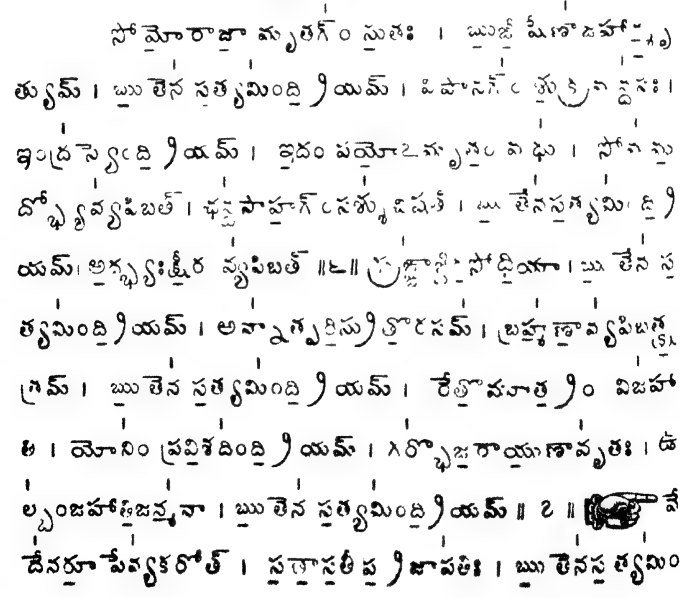 సోమో రాజా మృతగ్ం సుతః । ఋజీషేణాజహాన్మృ
త్యుమ్ । ఋతేన సత్యమింద్రియమ్ । విపానగ్ం శుక్రమన్ధసః ।
ఇంద్రస్యేంద్రియమ్ । ఇదం పయోఽమృతం మధు । సోమమ
ద్భ్యోవ్యపిబత్ । ఛన్దసాహగ్ంసశ్శుచిషత్ । ఋతేనసత్యమింద్రి
యమ్। అద్భ్యఃక్షీరం వ్యపిబత్ ॥౬॥ క్రుఙ్ఙాంగిరసోధియా । ఋతేన స
త్యమింద్రియమ్ । అన్నాత్పరిస్రుతోరసమ్ । బ్రహ్మణావ్యపిబత్క్ష
త్రమ్ । ఋతేన సత్యమింద్రియమ్ । రేతోమూత్రం విజహా
తి । యోనిం ప్రవిశదింద్రియమ్ । గర్భోజరాయుణావృతః । ఉ
ల్బంజహాతిజన్మనా । ఋతేన సత్యమింద్రియమ్ ॥ ౭ ॥ వే
దేనరూపేవ్యకరోత్ । సతాసతీప్రజాపతిః । ఋతేనసత్యమిం